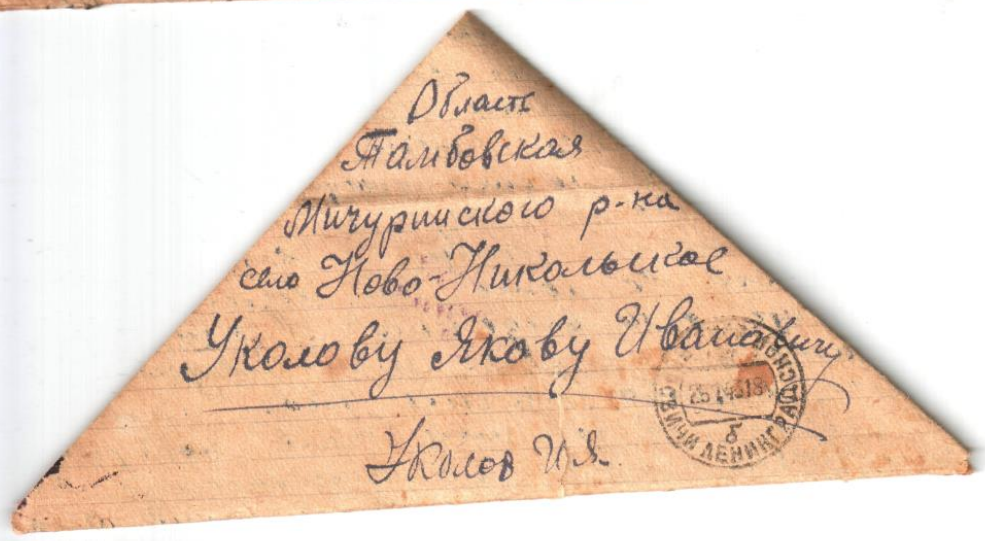 Область
Тамбовская
Мичуринского р-на
село Ново-Никольское
Уколову Якову Ивановичу
Уколов И.Я.
ЛЕНИНГРАДСКОЙ
б